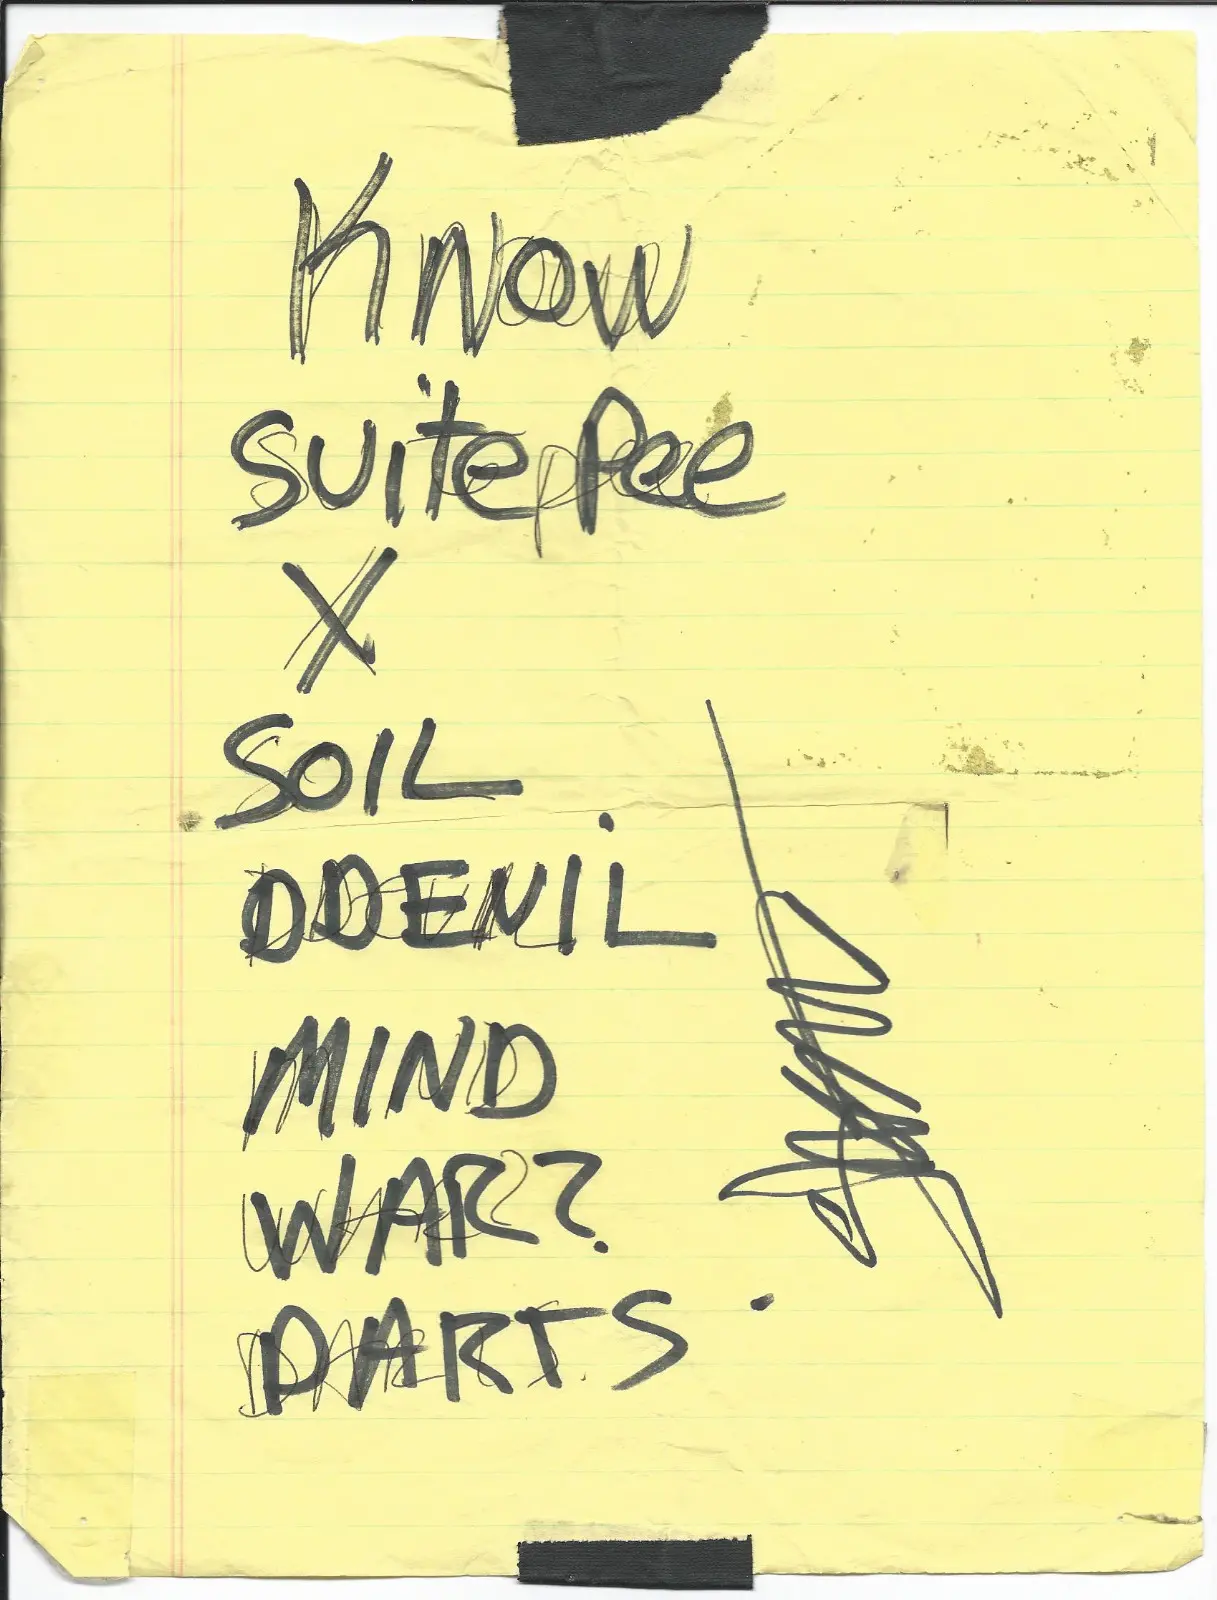 Know
suite Pee
X
SOIL
DDENIL
MIND
WAR?
DARTS.